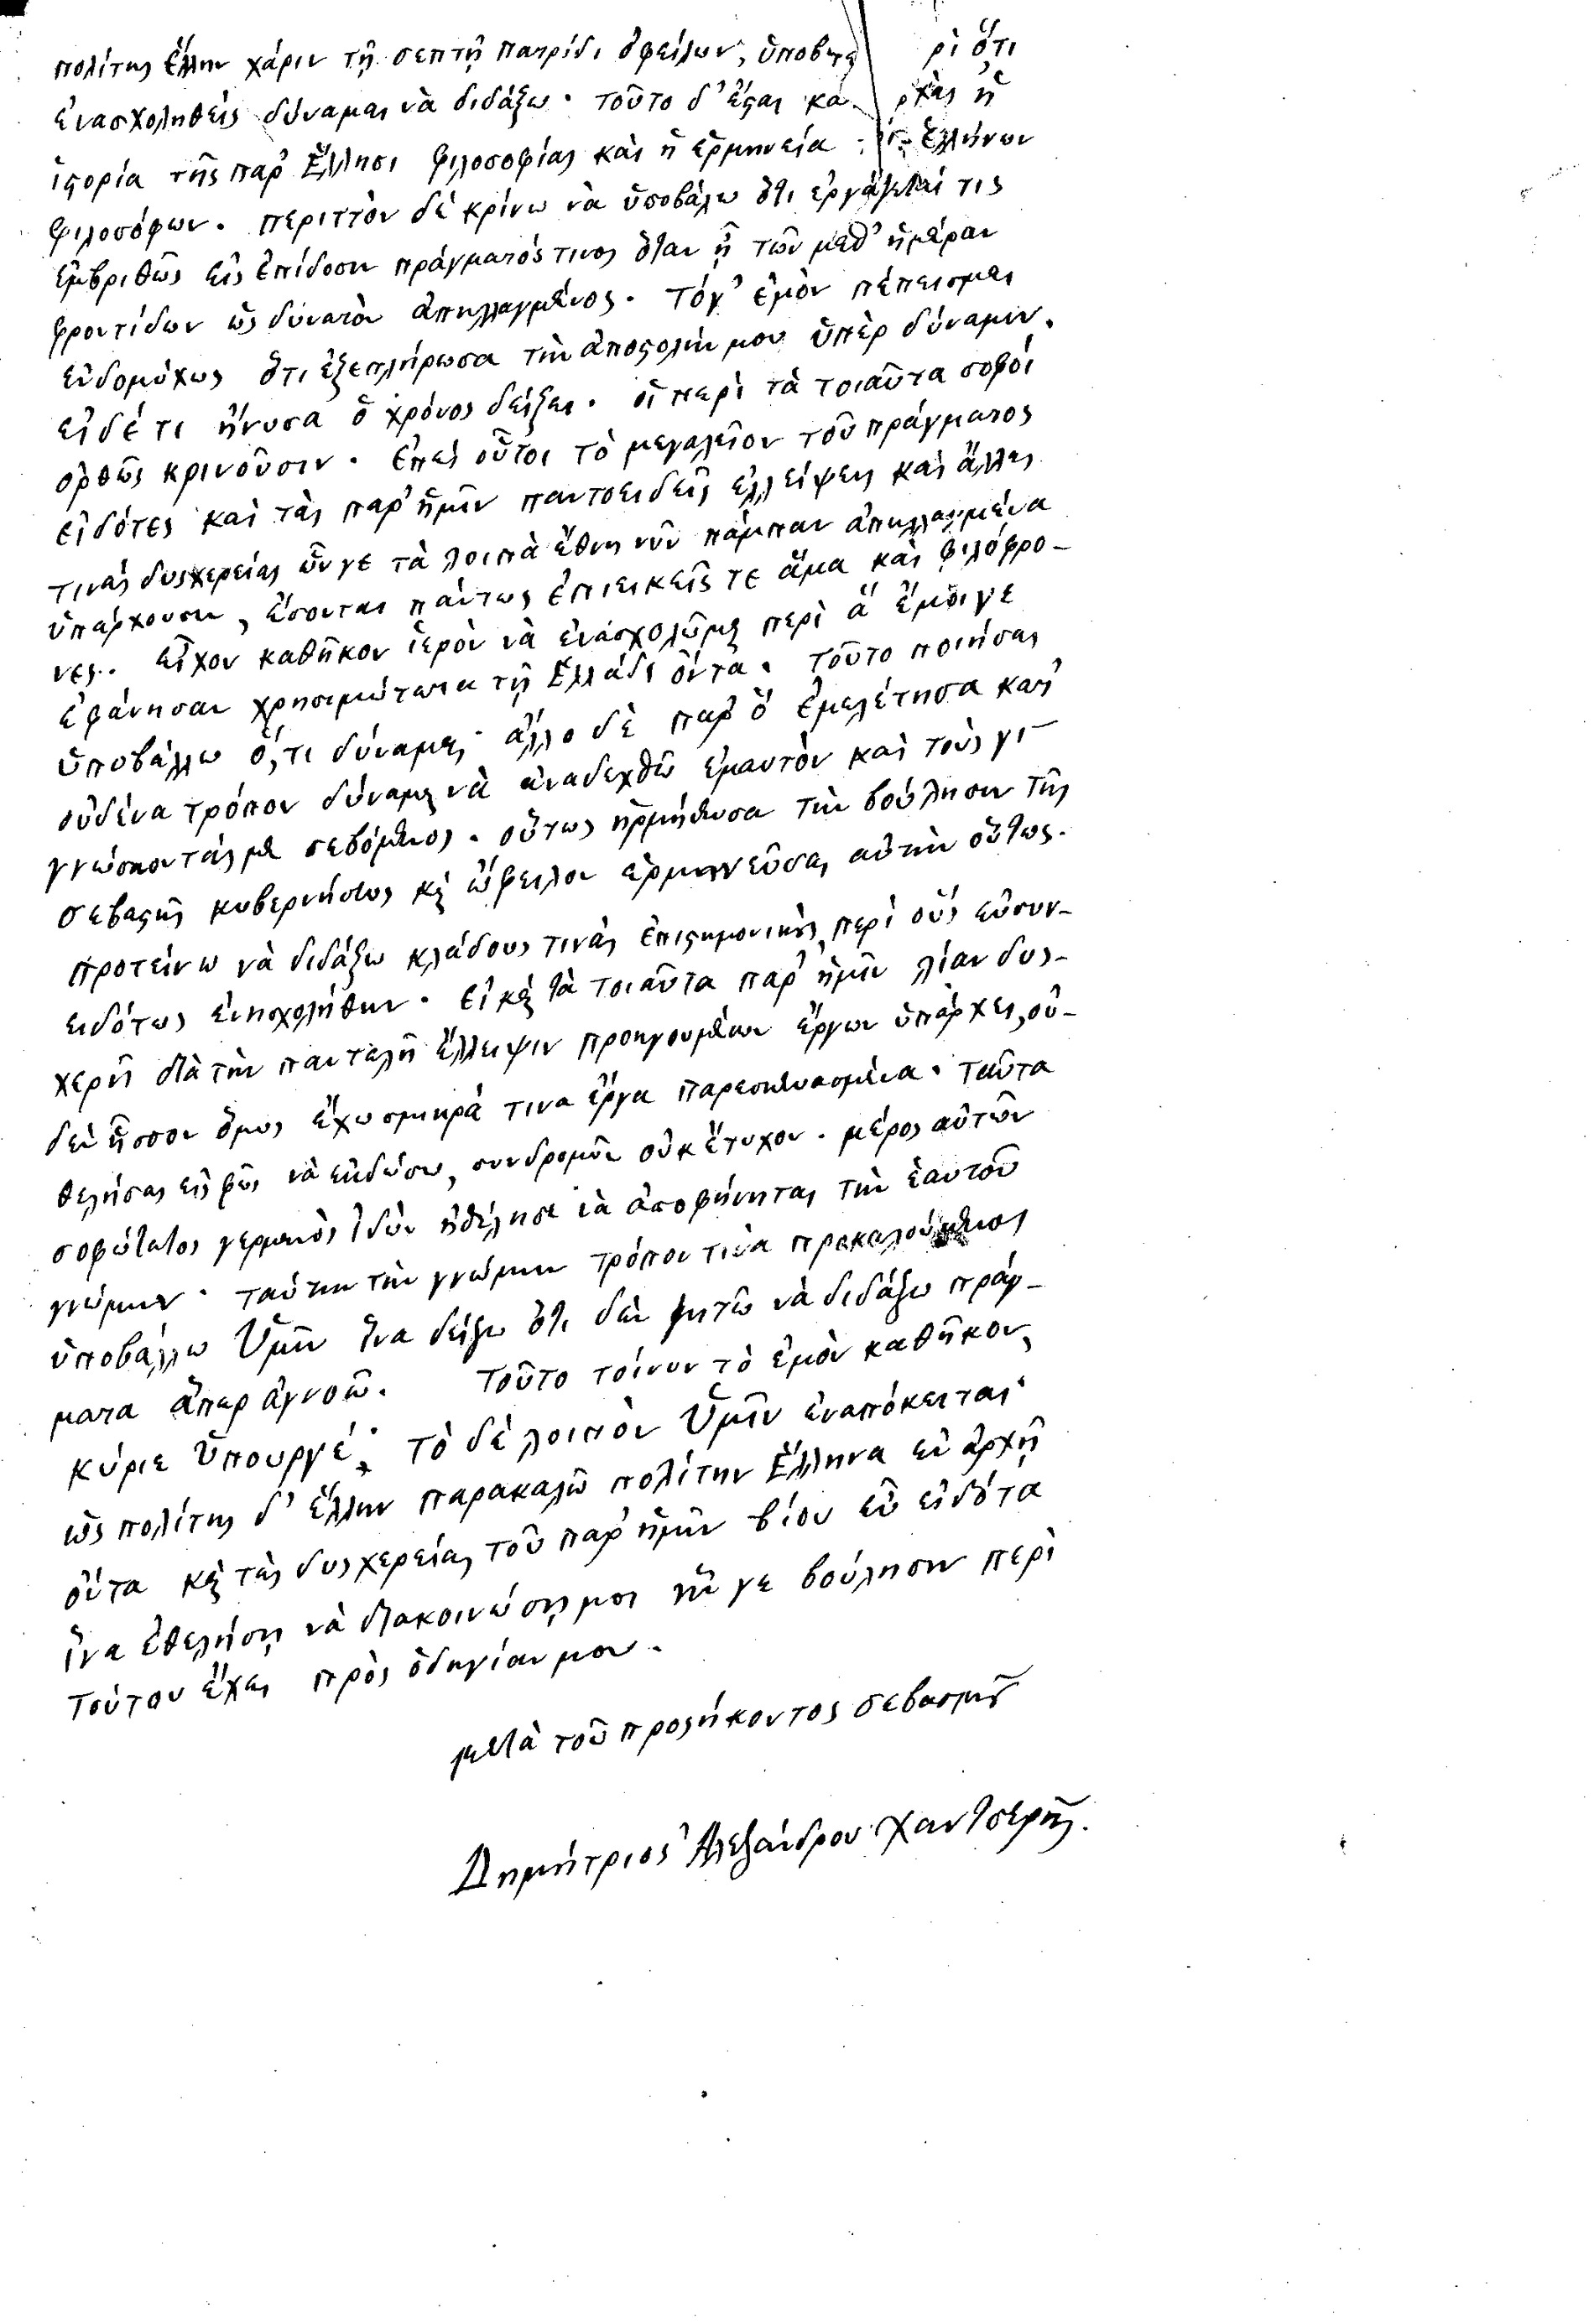 πολίτης Ἕλλην χάριν τῇ σεπτῇ πατρίδι ὀφείλων, ὑποβ ρὶ ὅτι
ἐνασχοληθεὶς δύναμαι νὰ διδάξω · τοῦτο δ' ἔςαι κα ἡ
ἱςορία τῆς παρ' Ἕλλησι φιλοσοφίας καὶ ἡ ἑρμηνεία Ἑλλήνων
φιλοσόφων. περιττὸν δὲ κρίνω νὰ ὑποβάλω ὅτι ἐργάζεταί τις
ἐμβριθῶς εἰς ἐπίδοσιν πράγματός τινος ὅταν ᾖ τῶν μεθ' ἡμέραν
φροντίδων ὡς δυνατὸν ἀπηλλαγμένος. τόγ' ἐμὸν πέπεισμαι
ἐνδομύχως ὅτι ἐξεπλήρωσα τὴν ἀποςολήν μου ὑπὲρ δύναμιν.
εἰ δέ τι ἤνυσα ὁ χρόνος δείξει. οἱ περὶ τὰ τοιαῦτα σοφοὶ
ὀρθῶς κρινοῦσιν. ἐπεὶ οὗτοι τὸ μεγαλεῖον τοῦ πράγματος
εἰδότες καὶ τὰς παρ' ἡμῖν παντοειδεῖς ἐλλείψεις καὶ ἄλλας
τινὰς δυςχερείας ὧν γε τὰ λοιπὰ ἔθνη νῦν πάμπαν ἀπηλλαγμένα
ὑπάρχουσιν, ἔσονται πάντως ἐπιεικεῖς τε ἅμα καὶ φιλόφρο-
νες. εἶχον καθῆκον ἱερὸν νὰ ἐνασχολῶμαι περὶ ἃ ἔμοιγε
ἐφάνησαν χρησιμώτατα τῇ Ἑλλάδι ὄντα. τοῦτο ποιήσας
ὑποβάλλω ὅ,τι δύναμαι· ἄλλο δὲ παρ' ὃ ἐμελέτησα κατ'
οὐδένα τρόπον δύναμαι νὰ ἀναδεχθῶ ἐμαυτὸν καὶ τοὺς γι-
γνώσκοντάς με σεβόμενος. οὕτως ἡρμήνευσα τὴν βούλησιν τῆς
σεβαςῆς κυβερνήσεως κ ὤφειλον ἑρμηνεῦσαι αὐτὴν οὕτως.
προτείνω νὰ διδάξω κλάδους τινὰς ἐπιςημονικοὺς περὶ οὓς εὐσυν-
ειδότως ἐνησχολήθην. εἰ κ τὰ τοιαῦτα παρ' ἡμῖν λίαν δυς-
χερῆ διὰ τὴν παντελῆ ἔλλειψιν προηγουμένων ἔργων ὑπάρχει, οὐ-
δὲν ἧσσον ὅμως ἔχω σμικρά τινα ἔργα παρεσκευασμένα. ταῦτα
θελήσας εἰς φῶς νὰ ἐκδώσω, συνδρομῶν οὐκ ἔτυχον. μέρος αὐτῶν
σοφώτατος γερμανὸς ἰδὼν ἠθέλησε νὰ ἀποφήνηται τὴν ἑαυτοῦ
γνώμην· ταύτην τὴν γνώμην τρόπον τινὰ προκαλούμενος
ὑποβάλλω Ὑμῖν ἵνα δείξω ὅτι δὲν ζητῶ νὰ διδάξω πράγ-
ματα ἅπερ ἀγνοῶ. Τοῦτο τοίνυν τὸ ἐμὸν καθῆκον,
κύριε Ὑπουργέ, τὸ δὲ λοιπὸν Ὑμῖν ἐναπόκειται·
ὡς πολίτης δ' Ἕλλην παρακαλῶ πολίτην Ἕλληνα ἐν ἀρχῇ
ὄντα κ τὰς δυςχερείας τοῦ παρ' ἡμῖν βίου εὖ εἰδότα
ἵνα ἐθελήσῃ νὰ διακοινώσῃ μοι ἥν γε βούλησιν περὶ
τούτου ἔχει πρὸς ὁδηγίαν μου.
μετὰ τοῦ προςήκοντος σεβασμοῦ
Δημήτριος Ἀλεξάνδρου Χαντσερῆς.